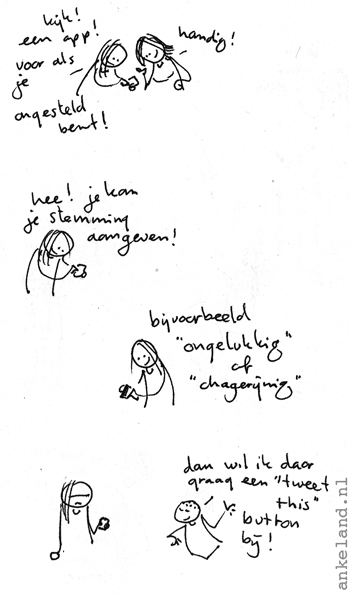 kijk!
een app!
voor als
je
ongesteld
bent!
handig!
hee! je kan
je stemming
aangeven!
bijvoorbeeld
"ongelukkig"
of
"chagerijnig"
dan wil ik daar
graag een "tweet
this"
button
bij!
ankeland.nl